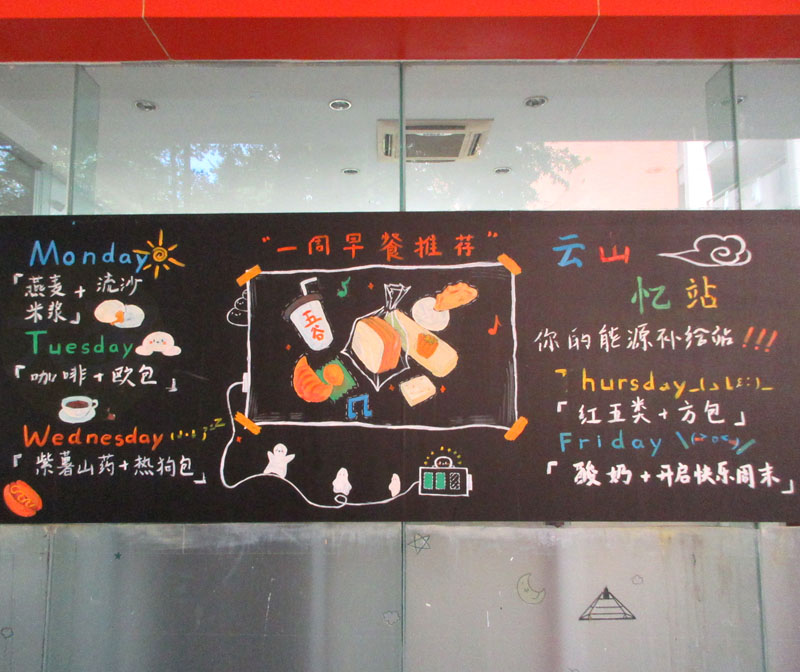 Monday
「燕麦+流沙
米浆」
Tuesday
「咖啡+欧包」
Wednesday
「紫薯山药+热狗包」
"一周早餐推荐"
五谷
云山
忆站
你的能源补给站!!!
Thursday
「红五类+方包」
Friday
「酸奶+开启快乐周末」